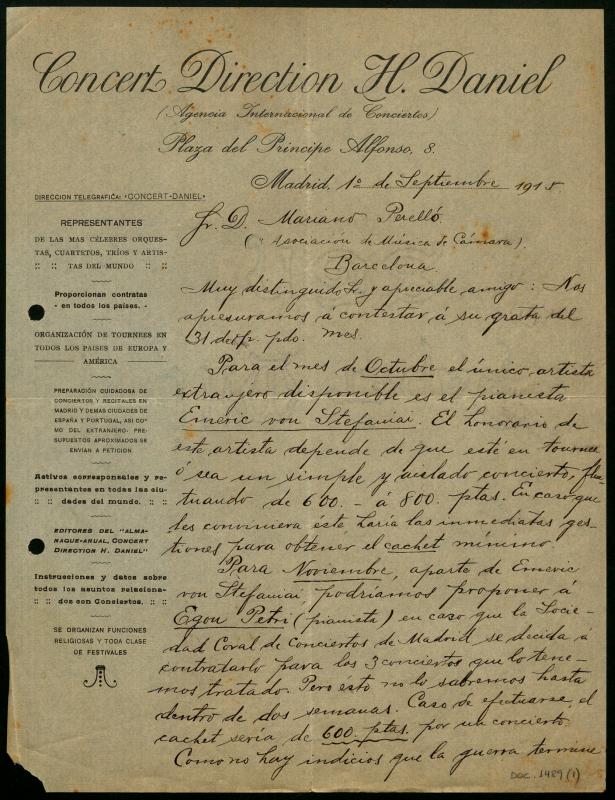 Concert Direction H. Daniel
(Agencia Internacional de Conciertos)
Plaza del Príncipe Alfonso, 8.
Madrid, 1º de Septiembre 1915
DIRECCION TELEGRAFICA: «CONCERT-DANIEL»
REPRESENTANTES
DE LAS MAS CÉLEBRES ORQUES-
TAS, CUARTETOS, TRÍOS Y ARTIS-
:: :: TAS DEL MUNDO :: ::
Proporcionan contratas
- en todos los países. -
ORGANIZACIÓN DE TOURNEES EN
TODOS LOS PAISES DE EUROPA Y
AMÉRICA
PREPARACIÓN CUIDADOSA DE
CONCIERTOS Y RECITALES EN
MADRID Y DEMAS CIUDADES DE
ESPAÑA Y PORTUGAL, ASI CO-
MO DEL EXTRANJERO: PRE-
SUPUESTOS APROXIMADOS SE
ENVIAN A PETICION.
Activos corresponsales y re-
presentantes en todas las ciu-
dades del mundo. :: ::
EDITORES DEL "ALMA-
NAQUE-ANUAL, CONCERT
DIRECTION H. DANIEL"
Instrucciones y datos sobre
todos los asuntos relaciona-
dos con Conciertos. :: ::
SE ORGANIZAN FUNCIONES
RELIGIOSAS Y TODA CLASE
DE FESTIVALES
Sr. D. Mariano Perelló.
(Asociación de Música de Cámara).
Barcelona
Muy distinguido Sr. y apreciable amigo: Nos
apresuramos á contestar á su grata del
31 del p. pdo. mes.
Para el mes de Octubre el único artista
extranjero disponible es el pianista
Emeric von Stefaniai. El honorario de
este artista depende de que esté en tournee
ó sea un simple y aislado concierto, fluc-
tuando de 600.- á 800. ptas. En caso que
les conviniera esté haria las inmediatas ges-
tiones para obtener el cachet mínimo.
Para Noviembre, aparte de Emeric
von Stefaniai podríamos proponer á
Egon Petri (pianista) en caso que la Socie-
dad Coral de Conciertos de Madrid se decida á
contratarlo para los 3 conciertos que lo tene-
mos tratado. Pero ésto no lo sabremos hasta
dentro de dos semanas. Caso de efectuarse, el
cachet sería de 600. ptas. por un concierto.
Como no hay indicios que la guerra termine
DOC. 1489 (1)